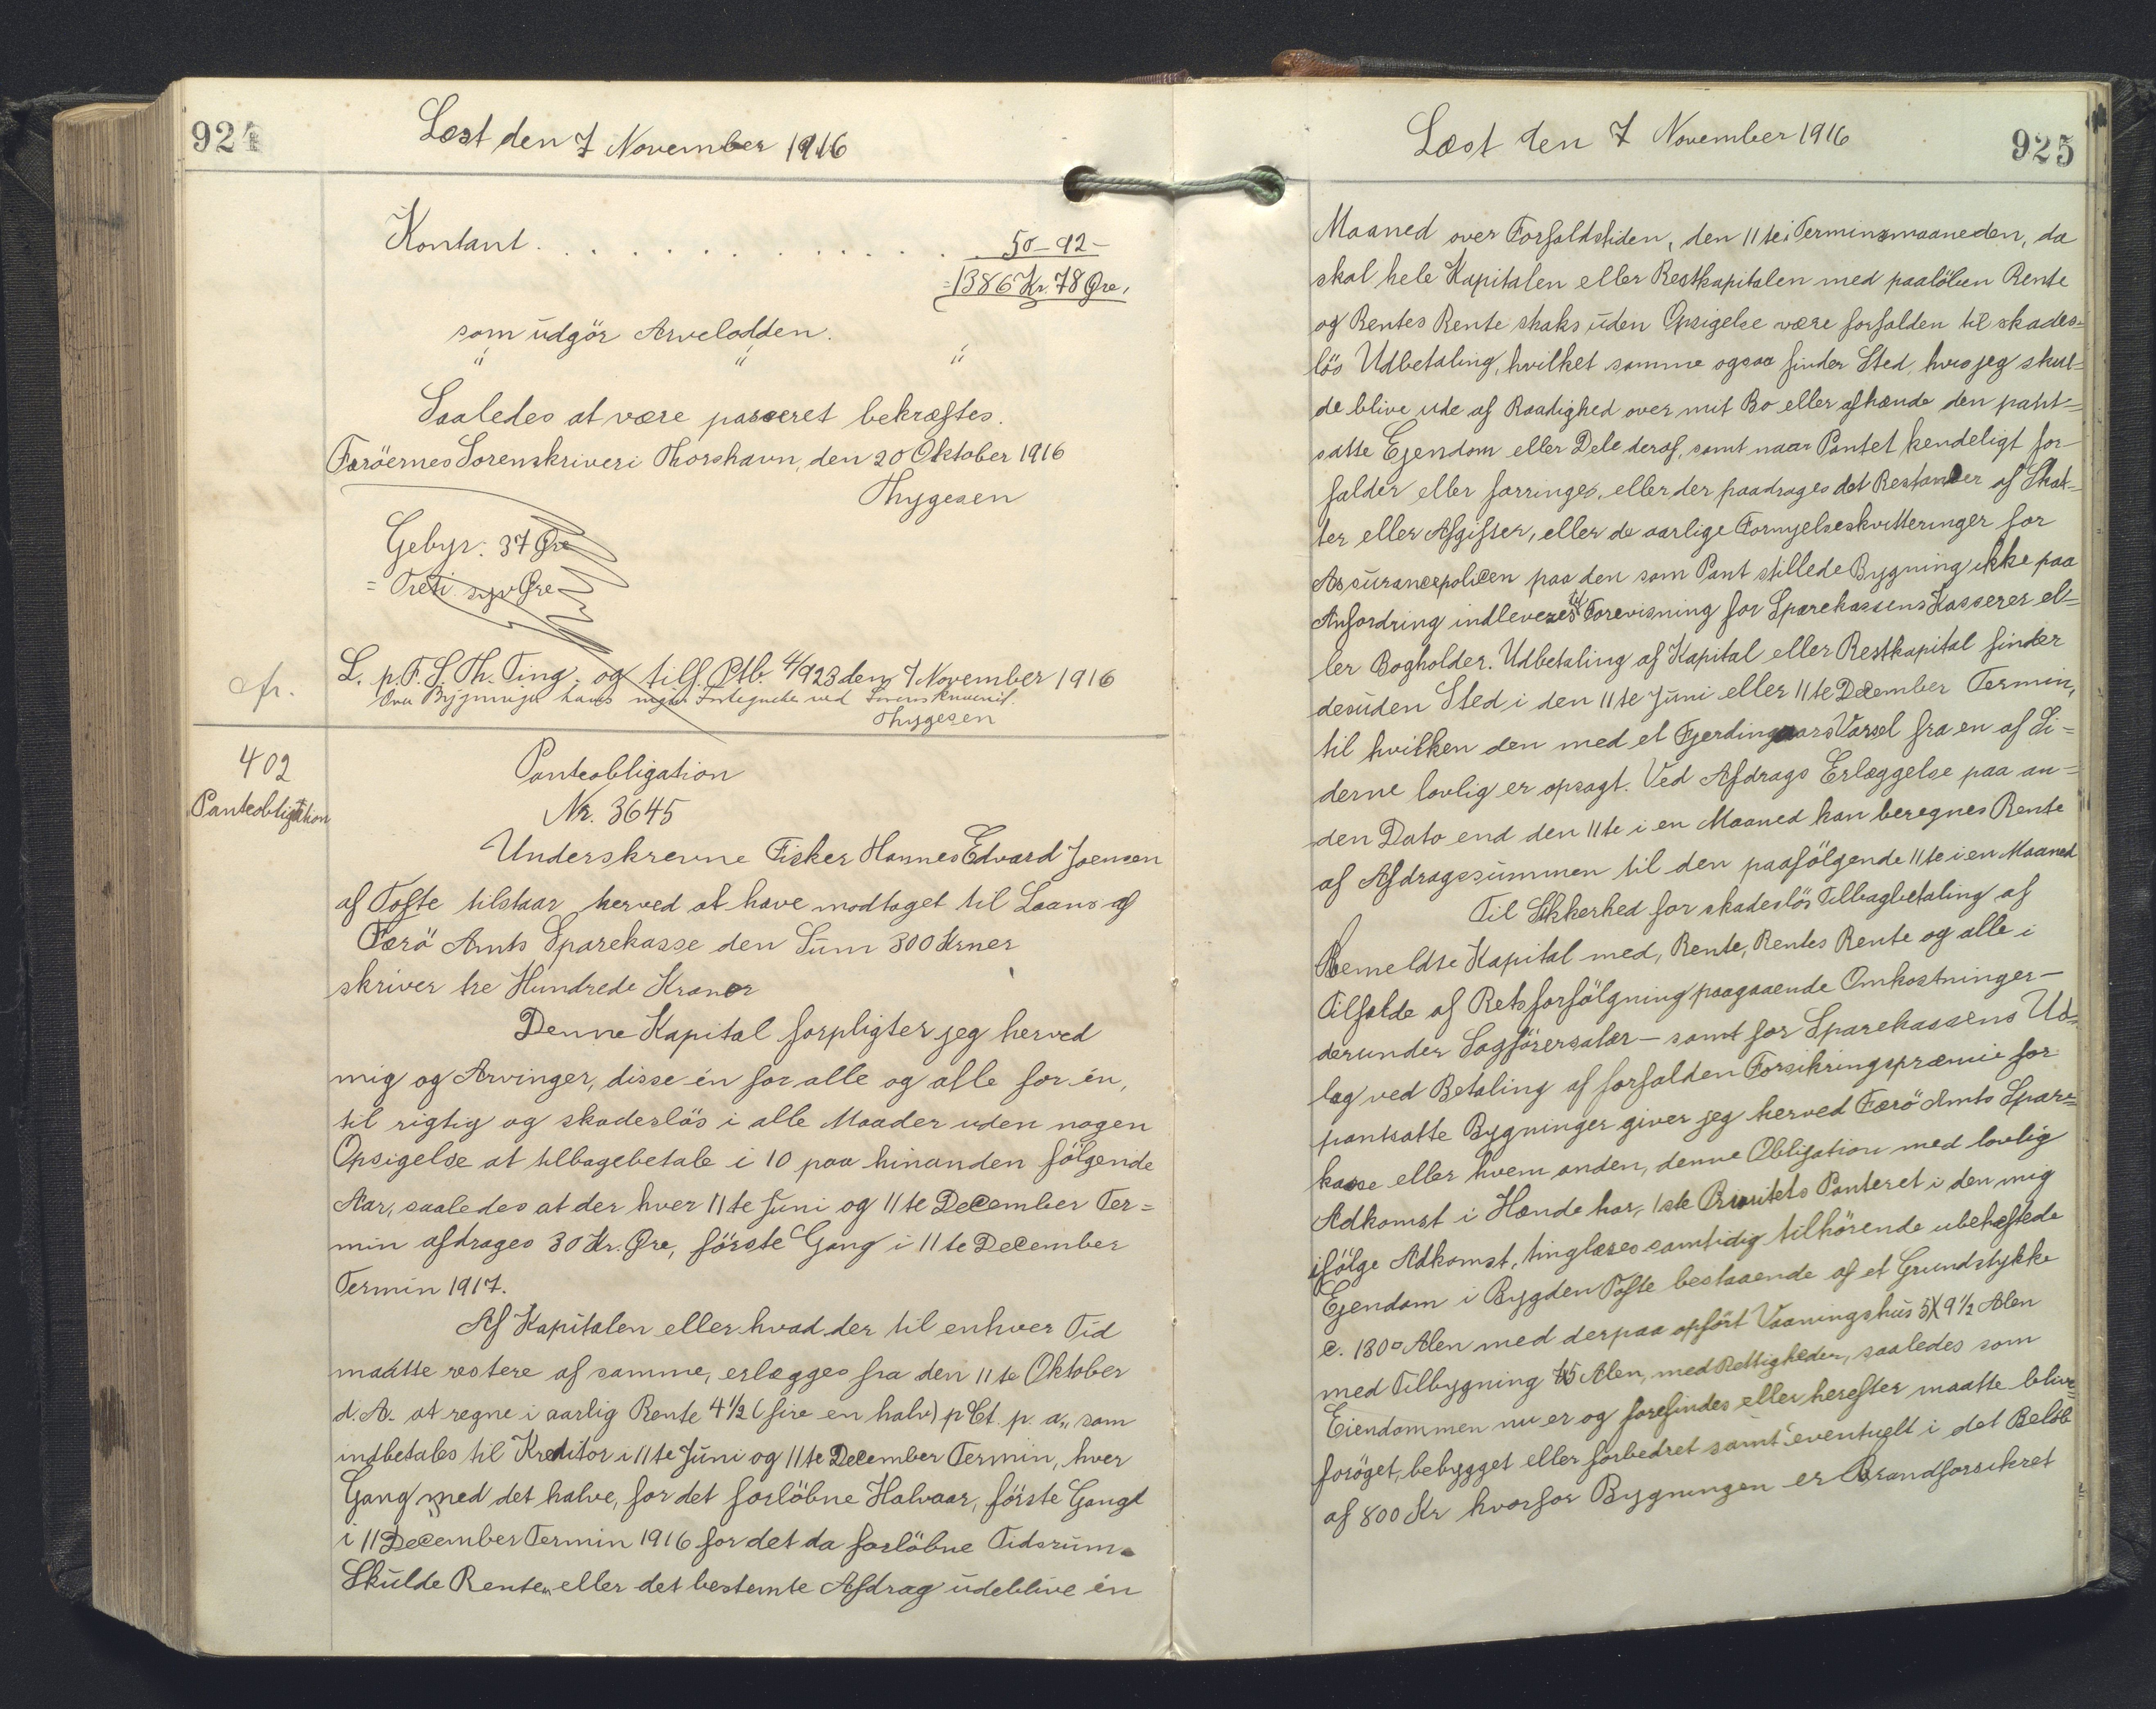 924
Læst den 7 November 1916
Kontant . . . . . . . . . . . . 50-92-
=1386 Kr. 78 Øre,
som udgör Arvelodden.
" " "
Saaledes at være passeret bekræftes.
Færöernes Sorenskriveri Thorshavn, den 20 Oktober 1916
Thygesen
Gebyr: 37 Øre
= Treti syv Øre
L. p. F. S. Th. Ting. og tilf. Ptb. 4/923 den 7 November 1916
cfr.
Over Bygninger haves Sorenskriveriet.
Thygesen
402
Panteobligation
Panteobligation
Nr. 3645
Underskrevne Fisker Hannes Edvard Joensen
af Tofte tilstaar herved at have modtaget til Laans af
Færö Amts Sparekasse den Sum 300 Krner
skriver tre Hundrede Kroner
Denne Kapital forpligter jeg herved
mig og Arvinger, disse én for alle og alle for én,
til rigtig og skadeslös i alle Maader uden nogen
Opsigelse at tilbagebetale i 10 paa hinanden fölgende
Aar, saaledes at der hver 11te Juni og 11te December Ter=
min afdrages 30 Kr. Øre, förste Gang i 11te December
Termin 1917.
Af Kapitalen eller hvad der til enhver Tid
maatte restere af samme, erlægges fra den 11te Oktober
d. A. at regne i aarlig Rente 4 1/2 (fire en halv) p Ct. p. a., som
indbetales til Kreditor i 11te Juni og 11te December Termin, hver
Gang med det halve, for det forlöbne Halvaar, förste Gang
i 11 December Termin 1916 for det da forlöbne Tidsrum.
Skulde Renten eller det bestemte Afdrag udeblive én
Læst den 7 November 1916
925
Maaned over Forfaldstiden, den 11te i Terminsmaaneden, da
skal hele Kapitalen eller Restkapitalen med paalöben Rente
og Rentes Rente straks uden Opsigelse være forfalden til skades=
lös Udbetaling, hvilket samme ogsaa finder Sted, hvis jeg skul=
de blive ude af Raadighed over mit Bo eller afhænde den pant=
satte Ejendom eller Dele deraf, samt naar Pantet kendeligt for
falder eller forringes, eller der paadrages det Restancer af Skat=
ter eller Afgifter, eller de aarlige Fornyelseskvitteringer for
Assurancepolicen paa den som Pant stillede Bygning ikke paa
Anfordring indleveres til Forevisning for Sparekassens Kasserer el=
ler Bogholder. Udbetaling af Kapital eller Restkapital finder
desuden Sted i den 11te Juni eller 11te December Termin,
til hvilken den med et Fjerdingaars Varsel fra en af Si=
derne lovlig er opsagt. Ved Afdrags Erlæggelse paa an=
den Dato end den 11te i en Maaned kan beregnes Rente
af Afdragssummen til den paafölgende 11te i en Maaned
Til Sikkerhed for skadeslös Tilbagbetaling af
Bemeldte Kapital med, Rente, Rentes Rente og alle i
Tilfælde af Retsforfölgning paagaaende Omkostninger—
derunder Sagförersalær — samt for Sparekassens Ud=
lag ved Betaling af forfalden Forsikringspræmie for
pantsatte Bygninger giver jeg herved Færö Amts Spare=
kasse eller hvem anden, denne Obligation med lovlig
Adkomst i Hænde har, 1ste Prioritets Panteret i den mig
ifölge Adkomst, tinglæses samtidig tilhörende ubehæftede
Ejendom i Bygden Tofte bestaaende af et Grundstykke
c. 180 □ Alen med derpaa opfört Vaaningshus 5X9 1/2 Alen
med Tilbygning Alen, med Rettigheder, saaledes som
Eiendommen nu er og forefindes eller herefter maatte blive
foröget, bebygget eller forbedret samt eventuelt i det Belöb
af 800 Kr hvorfor Bygningen er Brandforsikret